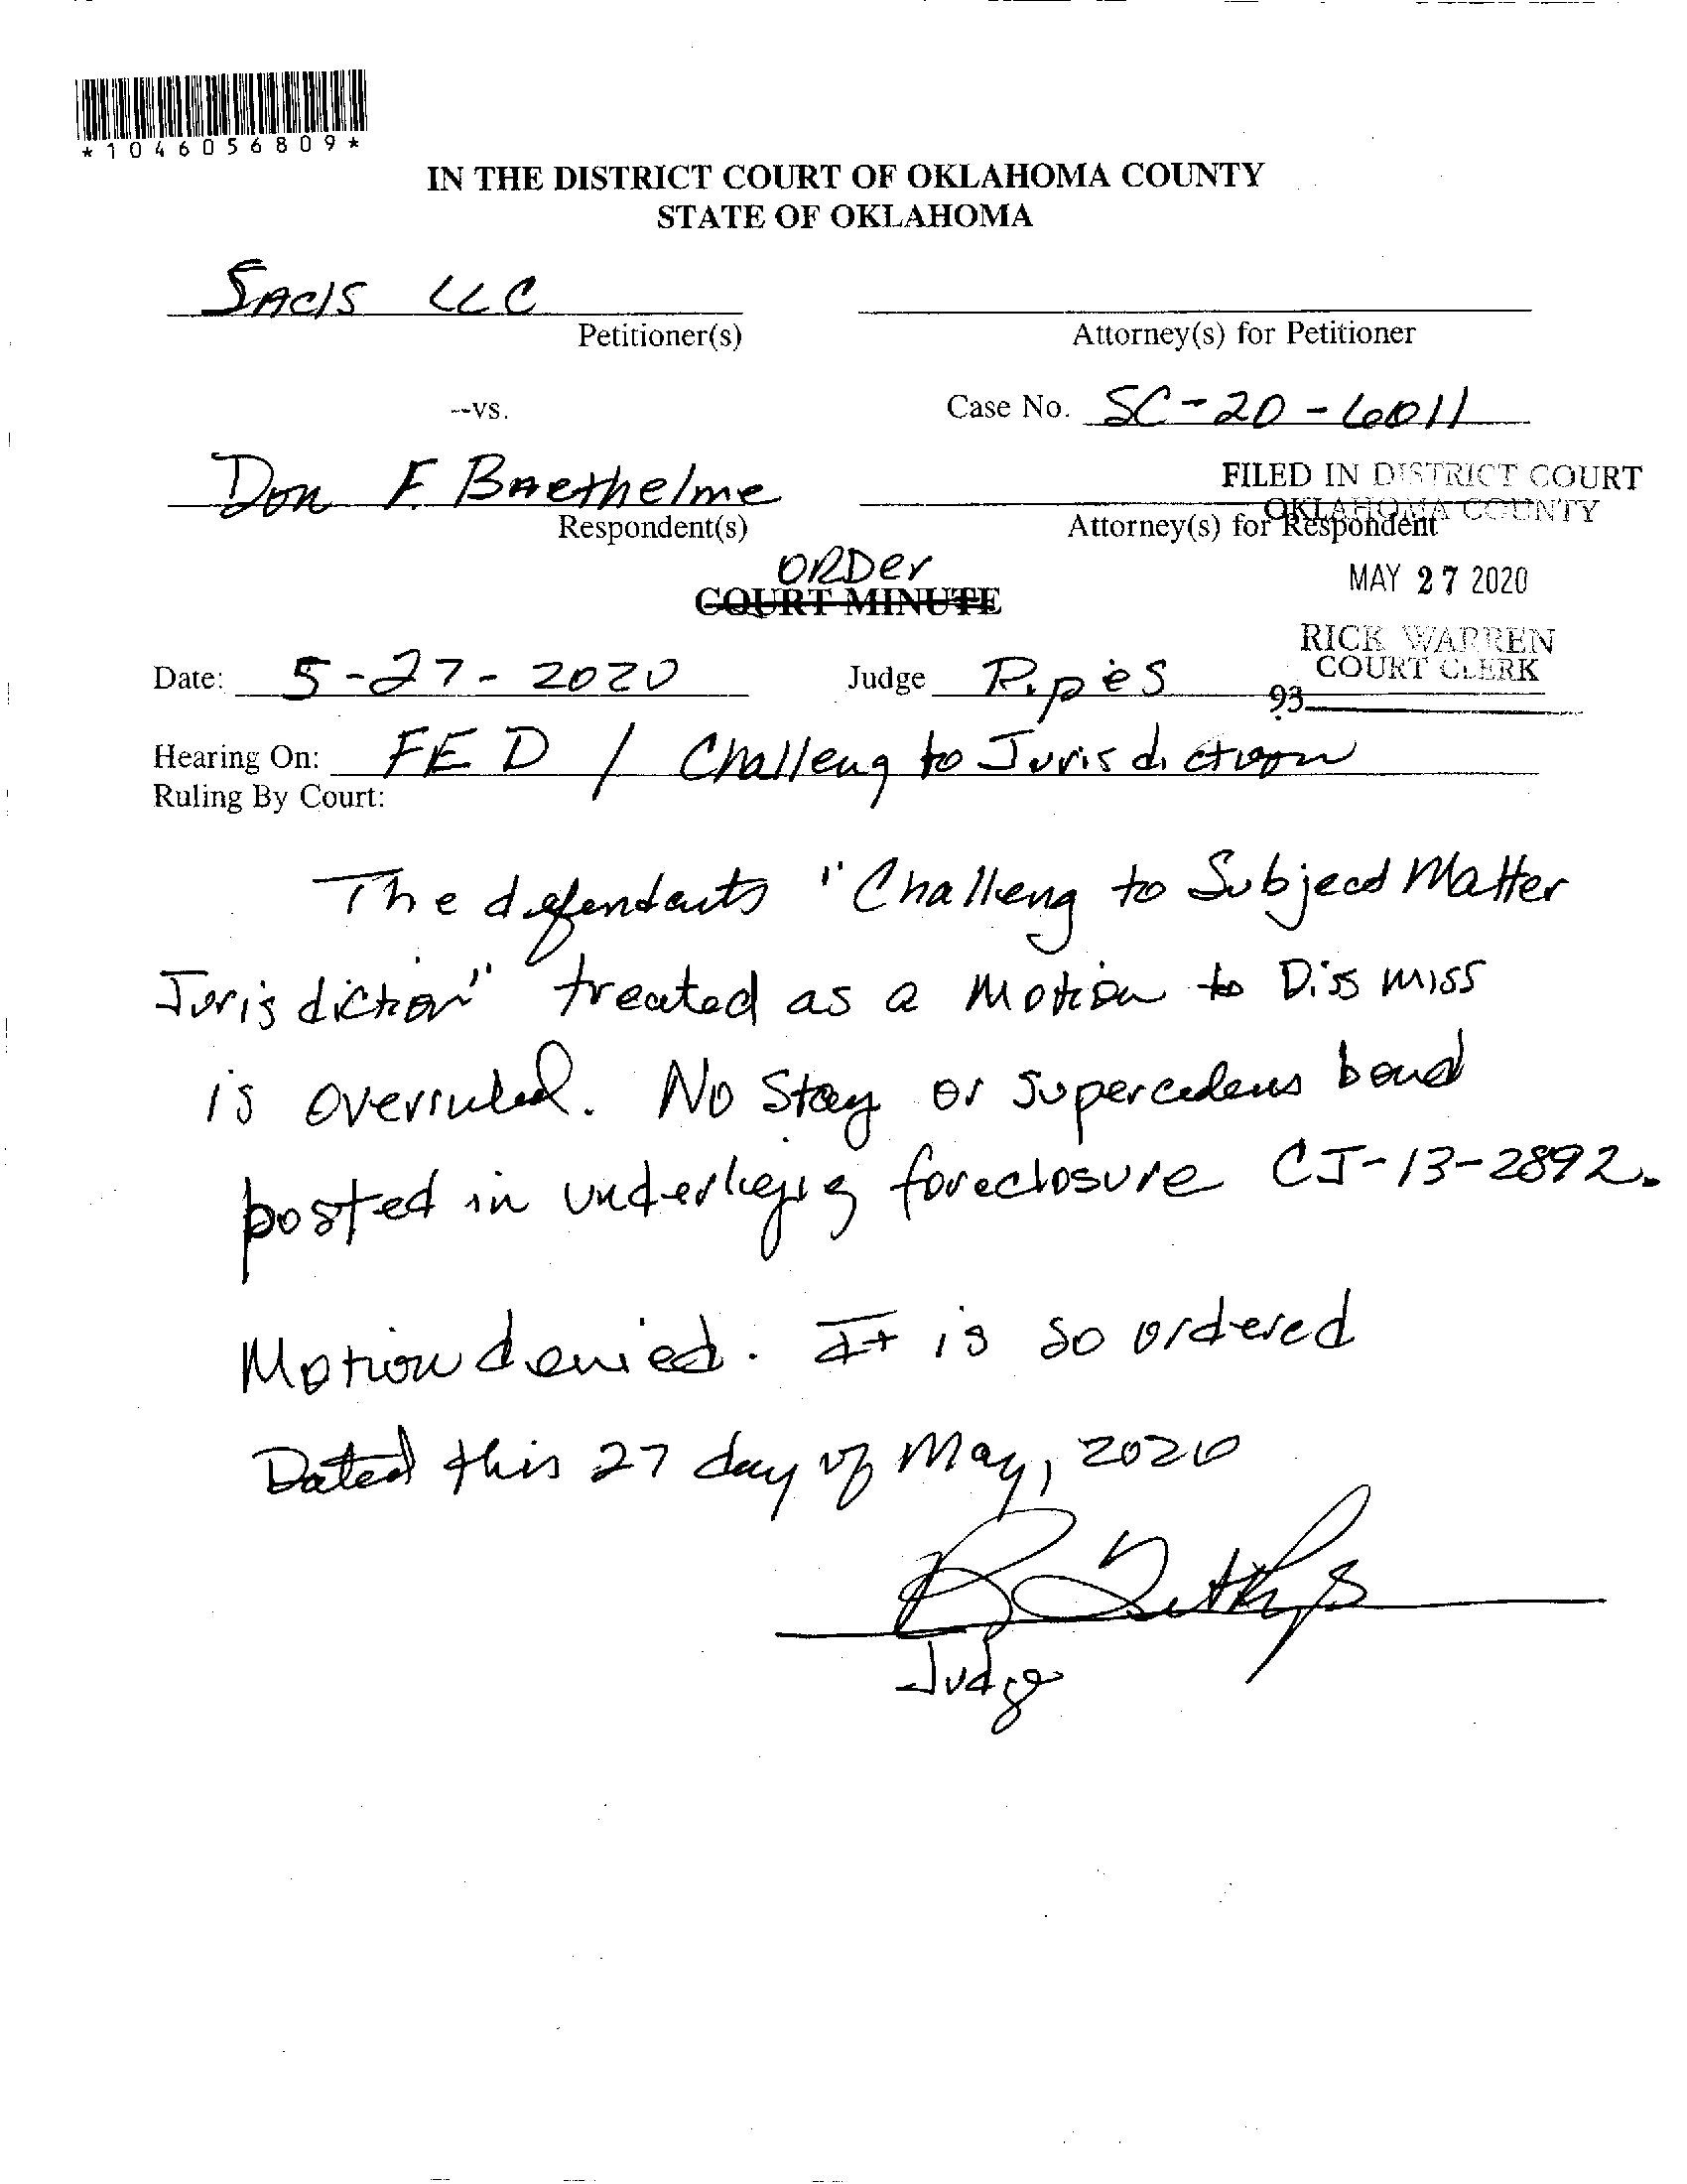 *1046056809*
IN THE DISTRICT COURT OF OKLAHOMA COUNTY
STATE OF OKLAHOMA
SACIS LLC
Petitioner(s)
Attorney(s) for Petitioner
--vs.
Case No. SC-20-6011
Don F. Barthelme
Respondent(s)
Attorney(s) for Respondent
FILED IN DISTRICT COURT
OKLAHOMA COUNTY
MAY 27 2020
RICK WARREN
COURT CLERK
93
ORDer
COURT MINUTE
Date: 5-27-2020
Judge Pipes
Hearing On: FED / Challeng to Jurisdiction
Ruling By Court:
The defendants "Challeng to Subject Matter
Jurisdiction" treated as a Motion to Dismiss
is overruled. No Stay or supercedeus bond
posted in underlying foreclosure CJ-13-2892.
Motion denied. It is so ordered
Dated this 27 day of May, 2020
Judge